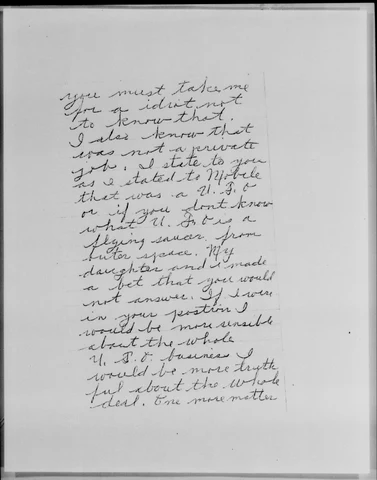 you must take me
for a idiot not
to know that.
I also know that
was not a private
job. I state to you
as I stated to Mobile
that was a U.F.O
or if you dont know
what U.F.O is a
flying saucer from
outer space. My
daughter and i made
a bet that you would
not answer. If i were
in your postion I
would be more sensible
about the whole
U.F.O. business I
would be more truth
ful about the whole
deal. One more matter